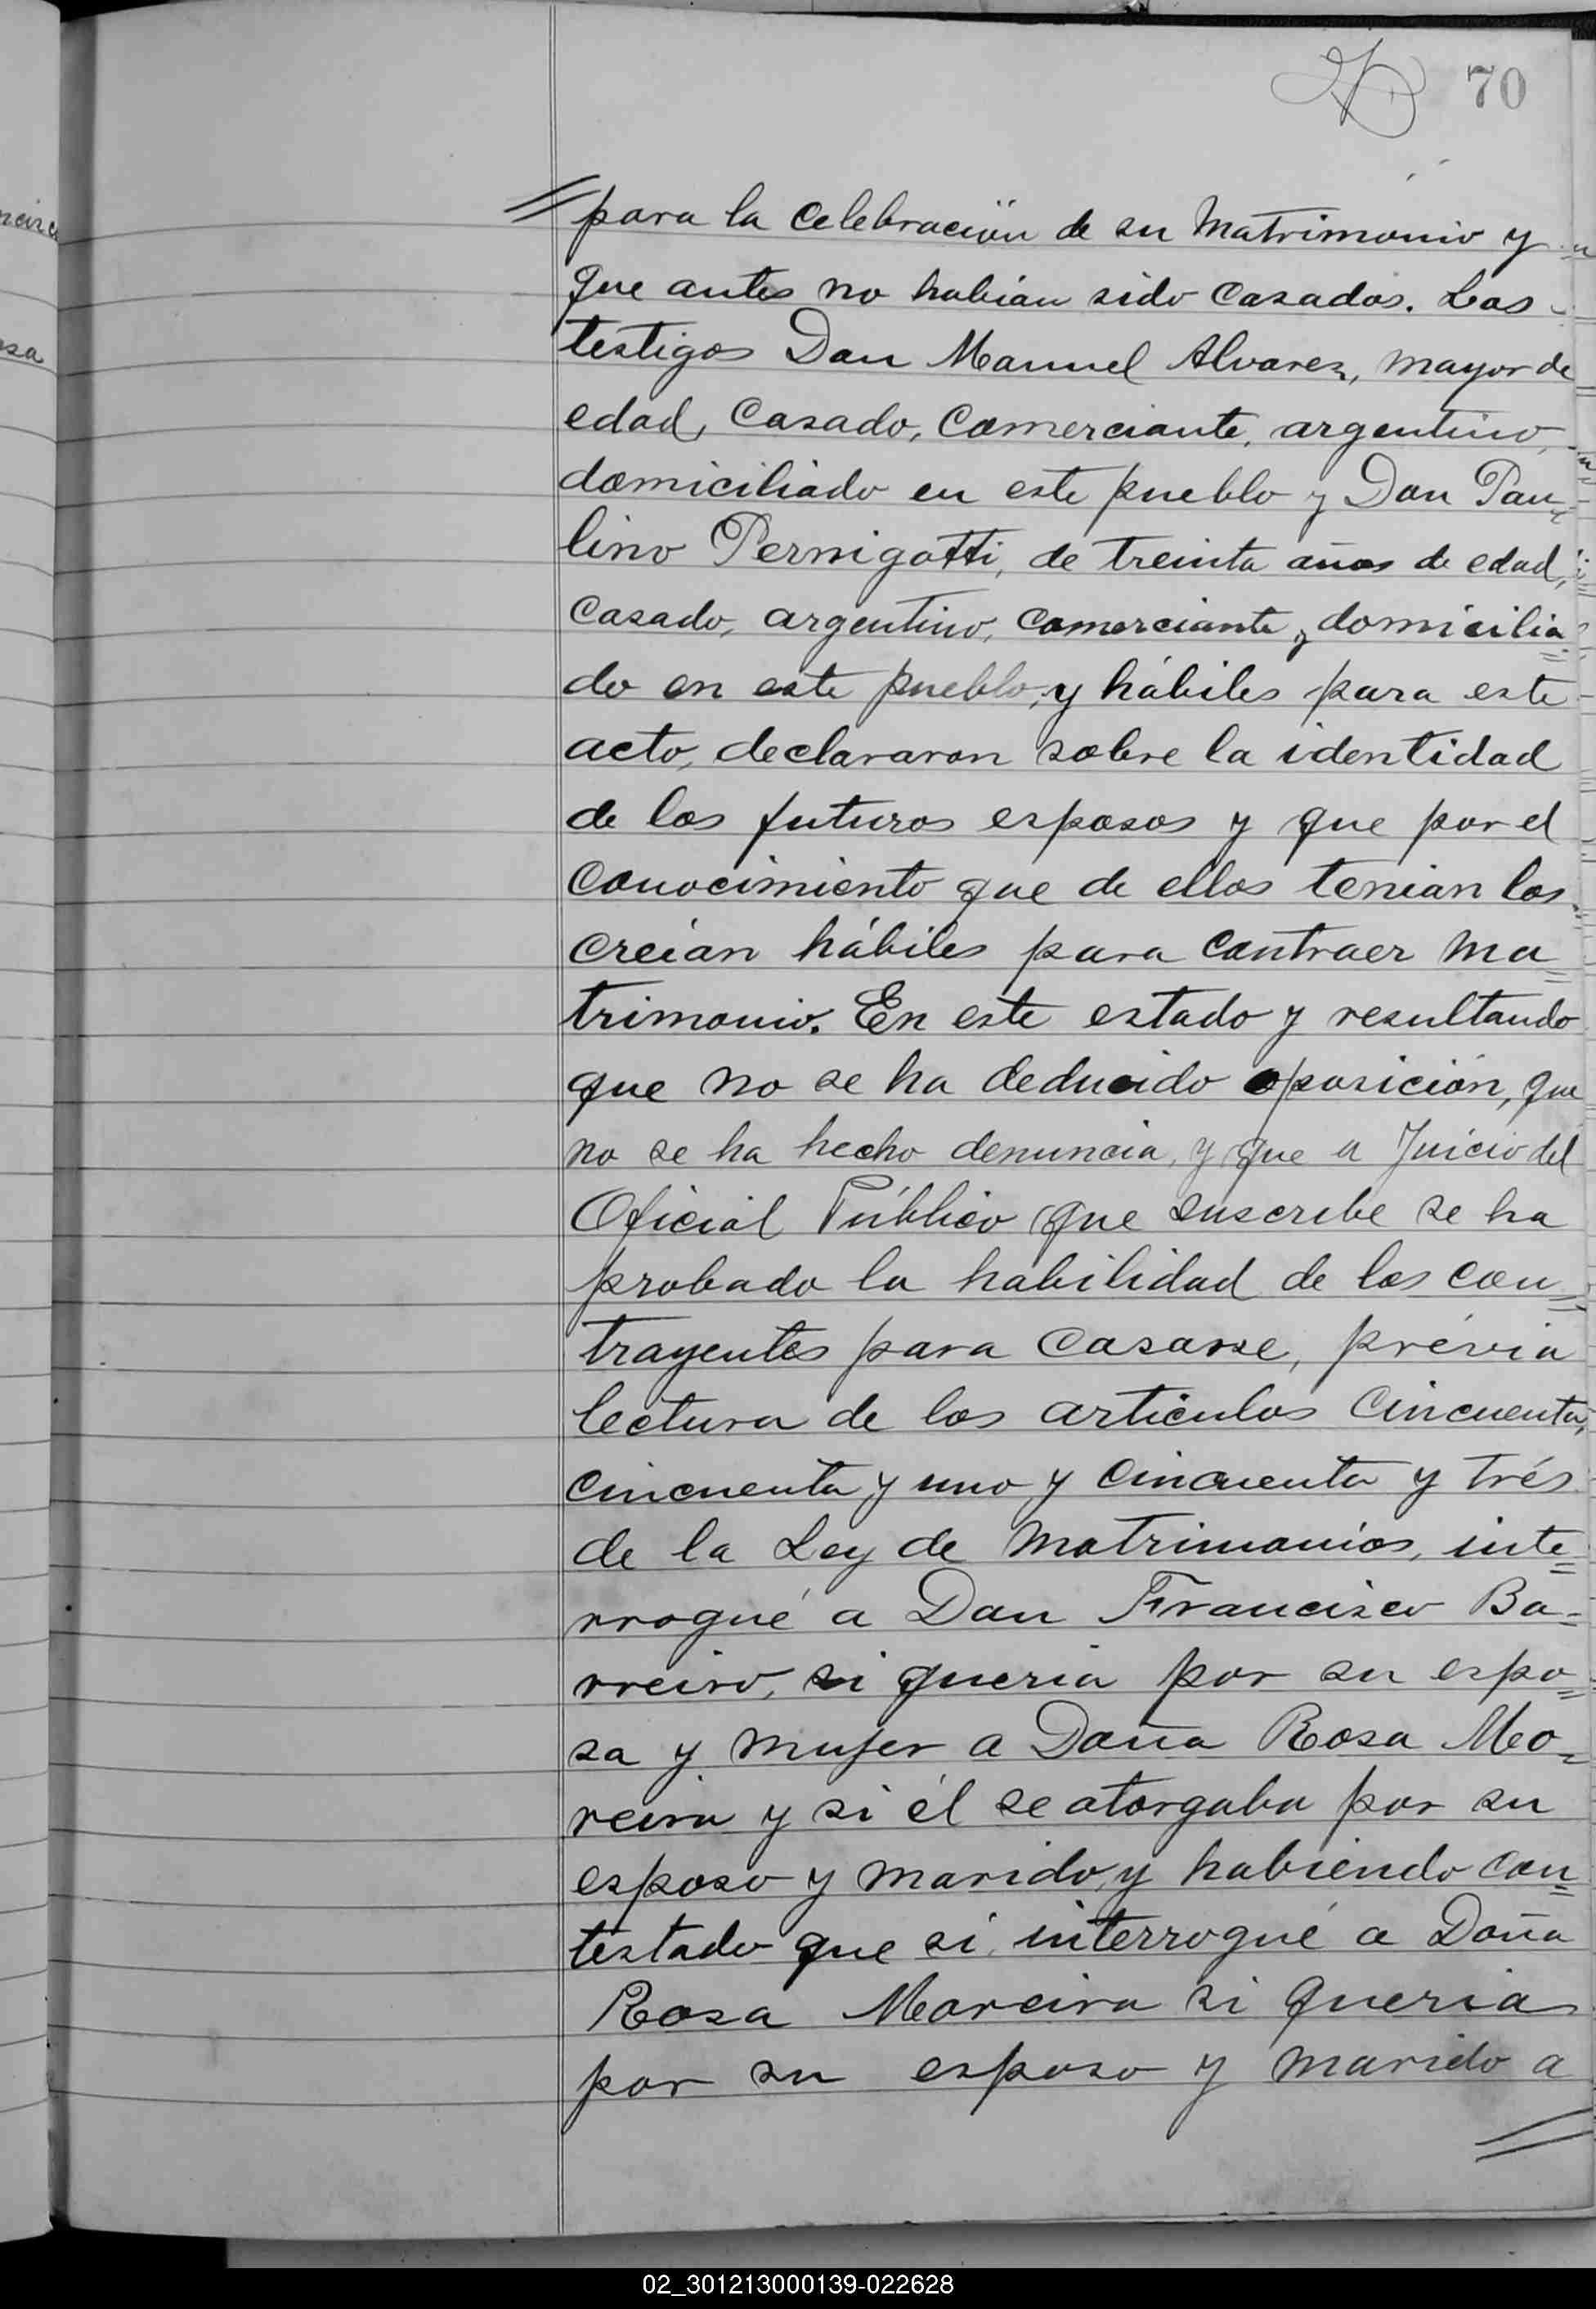 70
para la celebración de su Matrimonio y
que antes no habían sido casados. Los
testigos Don Manuel Alvarez, mayor de
edad, casado, comerciante, argentino,
domiciliado en este pueblo y Don Pau=
lino Pernigotti, de treinta años de edad,
casado, argentino, comerciante y domicilia=
do en este pueblo, y hábiles para este
acto, declararon sobre la identidad
de los futuros esposos y que por el
conocimiento que de ellos tenian los
creían hábiles para contraer ma=
trimonio. En este estado y resultando
que no se ha deducido oposición, que
no se ha hecho denuncia, y que a Juicio del
Oficial Público que suscribe se ha
probado la habilidad de los con=
trayentes para casarse, prévia
lectura de los artículos cincuenta,
cincuenta y uno y cincuenta y trés
de la Ley de Matrimonios, inte=
rrogué a Don Francisco Ba=
rreiro, si queria por su espo=
sa y mujer a Doña Rosa Mo=
reira y si él se otorgaba por su
esposo y marido, y habiendo con=
testado que si, interrogué a Doña
Rosa Moreira si queria
por su esposo y marido a
02_301213000139-022628